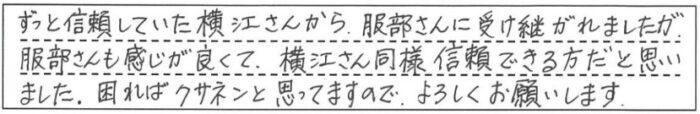 ずっと信頼していた横江さんから、服部さんに受け継がれましたが、
服部さんも感じが良くて、横江さん同様信頼できる方だと思い
ました。困ればクサネンと思ってますので、よろしくお願いします。